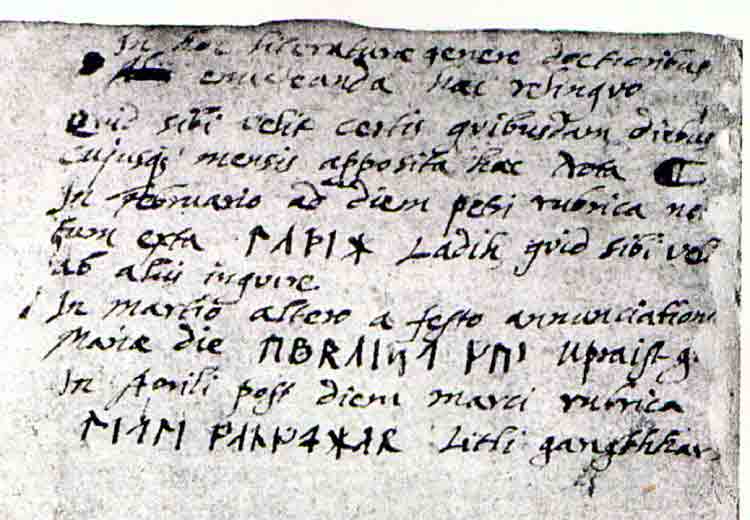 In hoc literaturæ genere doctioribus
enucleanda hæc relinquo
Quid sibi velit certis quibusdam diebus
cujusq; mensis apposita hæc Nota
In Februario ad diem petri rubrica no
tum exta ᛚᛆᚦᛁᚼ Ladih quid sibi vel
ab aliis inquire
In martio altero a festo annunciation
Mariæ die ᚢᛒᚱᛆᛁᛋᛐ upraist g
In Aprili post diem marci rubrica
ᛚᛁᛐᛚᛁ Litli